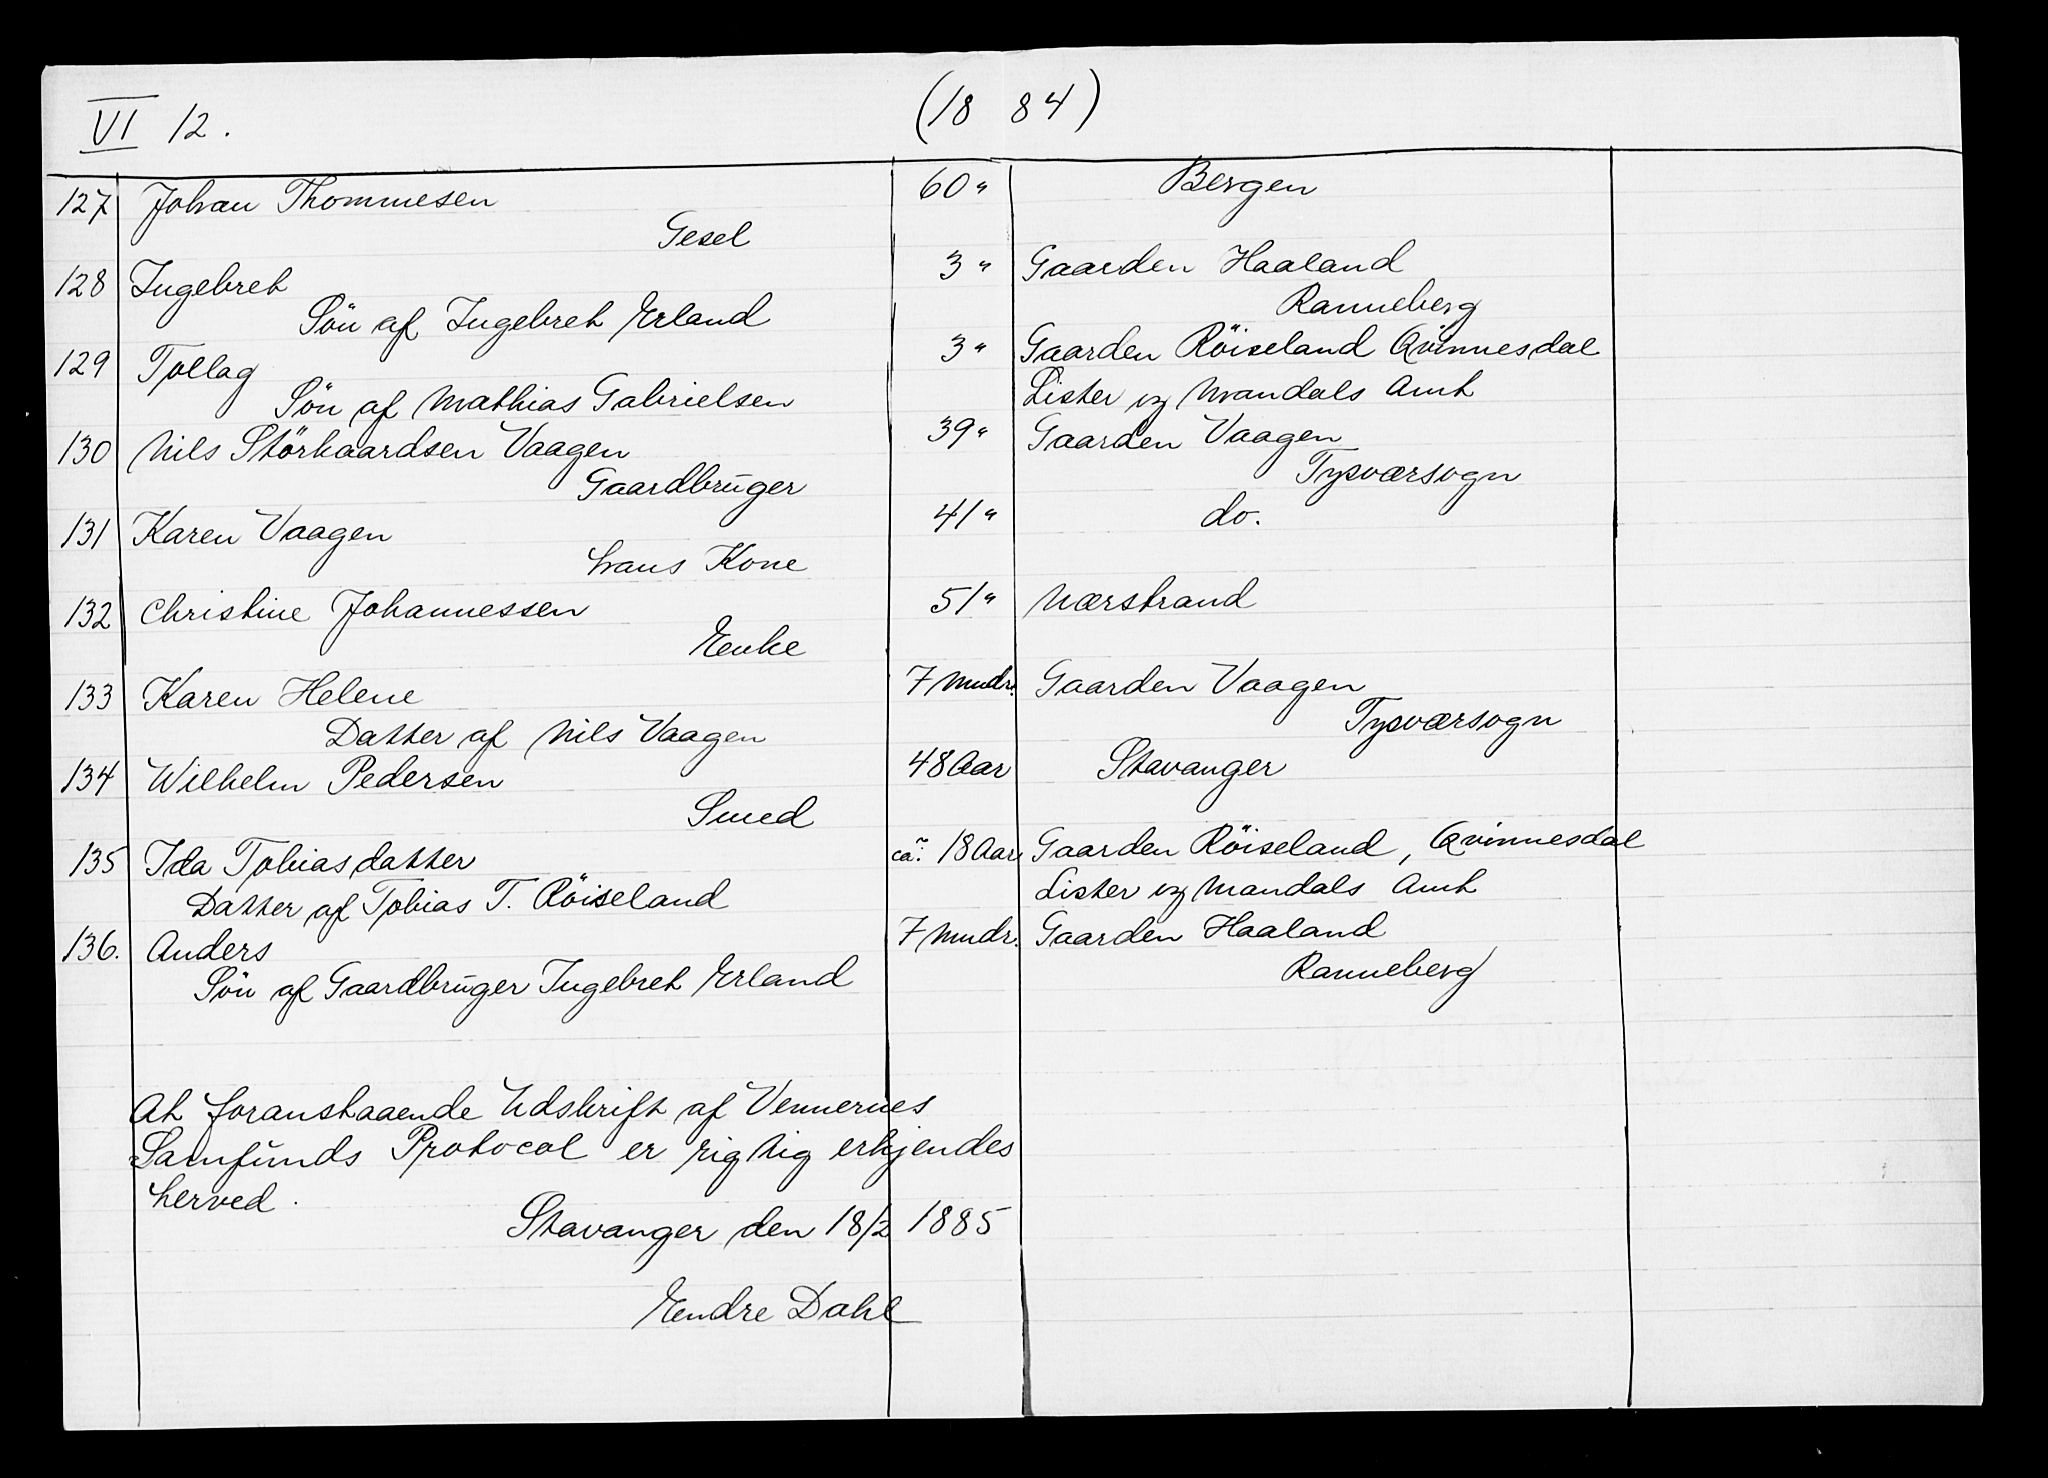 VI 12.
(18 84)
127 Johan Thommesen 60 " Bergen
Gesel
128 Ingebret 3 " Gaarden Haaland
Sön af Ingebret Erland Ranneberg
129 Tollag 3 " Gaarden Röiseland Qvinnesdal
Sön af Mathias Gabrielsen Lister og Mandals Amt
130 Nils Störkaardsen Vaagen 39 " Gaarden Vaagen
Gaardbruger Tysværsogn
131 Karen Vaagen 41 " do.
hans Kone
132 Christine Johannessen 51 " Nærstrand
Enke
133 Karen Helene 7 Mndr. Gaarden Vaagen
Datter af Nils Vaagen Tysværsogn
134 Wilhelm Pedersen 48 Aar Stavanger
Smed
135 Ida Tobiasdatter ca. 18 Aar Gaarden Röiseland, Qvinnesdal
Datter af Tobias T. Röiseland Lister og Mandals Amt
136. Anders 7 Mndr. Gaarden Haaland
Sön af Gaardbruger Ingebret Erland Ranneberg
At foranstaaende Udskrift af Vennernes
Samfunds Protocol er rigtig erkjendes
herved.
Stavanger den 18/2 1885
Endre Dahl